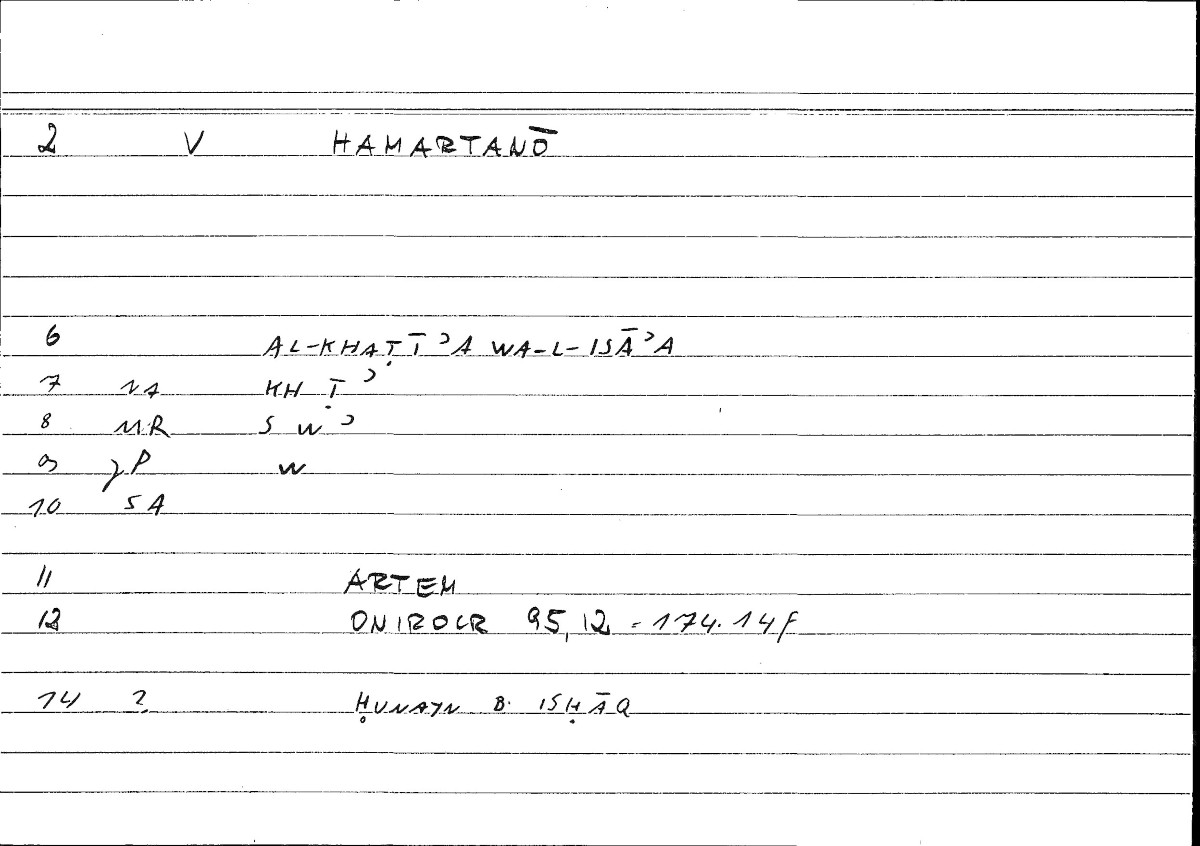 2 V HAMARTANŌ
6 AL-KHAṬĪʾA WA-L-ISĀʾA
7 NA KH Ṭ ʾ
8 MR S W ʾ
9 γP W
10 SA
11 ARTEM
12 ONIROCR 95,12 = 174.14f
14 ? ḤUNAYN B. ISḤĀQ